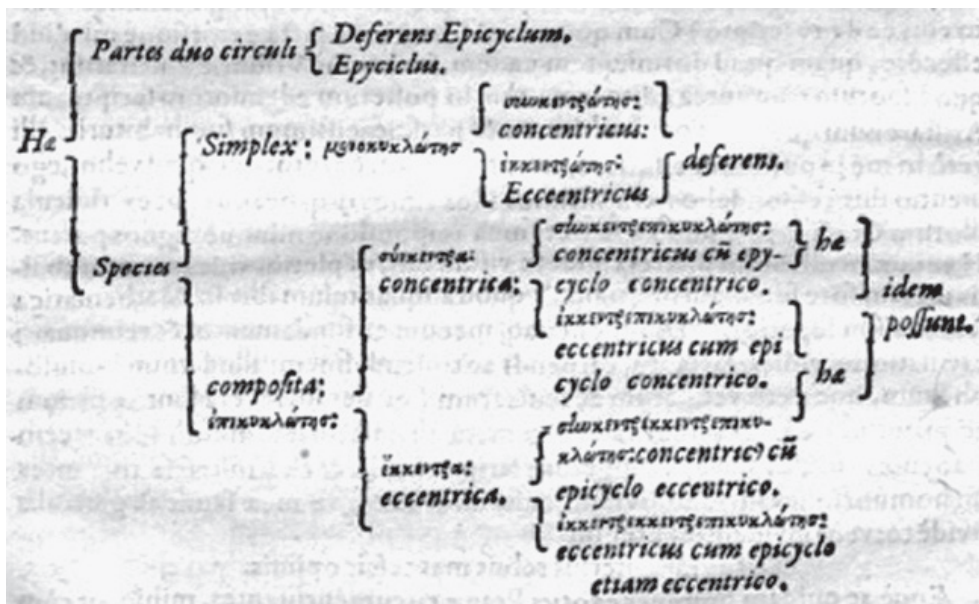 Hæ
Partes duo circuli
Deferens Epicyclum.
Epyciclus.
Species
Simplex: μονοκυκλώτης
συωκεντρώτης:
concentricus:
ἐκκεντρώτης:
Ecceentricus
deferens.
composita:
ἐπικυκλώτης:
σύνκεντρα:
concentrica:
συωκεντρεπικυκλώτης:
concentricus cũ epy-
cyclo concentrico.
ἐκκεντρεπικυκλώτης:
eccentricus cum epi
cyclo concentrico.
hæ
hæ
idem
possunt.
ἔκκεντρα:
eccentrica.
συωκεντρεκκεντρεπικυ-
κλώτης: concentricꝰ cũ
epicyclo eccentrico.
ἐκκεντρεκκεντρεπικυκλώτης:
eccentricus cum epicyclo
etiam eccentrico.